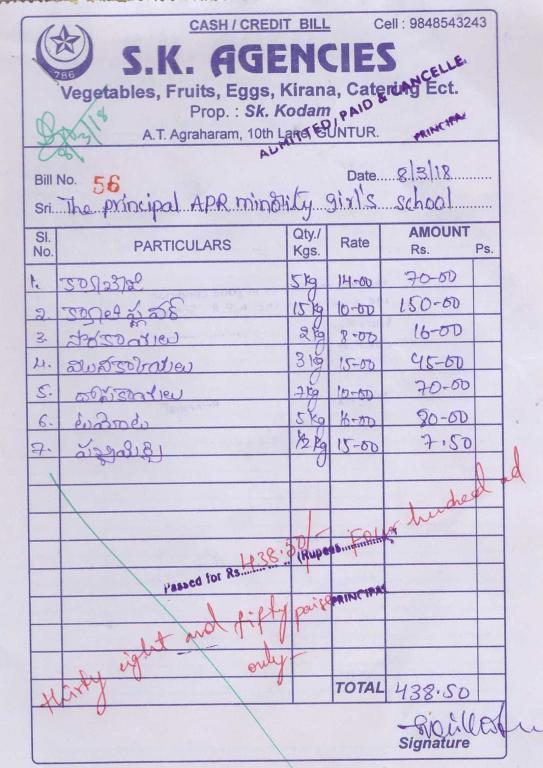 CASH / CREDIT BILL Cell : 9848543243
786
S.K. AGENCIES
Vegetables, Fruits, Eggs, Kirana, Catering Ect.
Prop. : Sk. Kodam
A.T. Agraharam, 10th Lane, GUNTUR.
ADMITTED, PAID & CANCELLE
PRINCIPAL
8/3/18
Bill No. 56 Date 8/3/18
Sri. The principal APR minority girl's school
Sl. No. PARTICULARS Qty./ Kgs. Rate AMOUNT Rs. Ps.
1. 5kg 14-00 70-00
2. 15kg 10-00 150-00
3. 2kg 8-00 16-00
4. 3kg 15-00 45-00
5. 7kg 10-00 70-00
6. టమోటో 5kg 16-00 80-00
7. పచ్చిమిర్చి 1/2kg 15-00 7.50
Passed for Rs. 438.50/- (Rupees Four hundred ad
thirty eight and fifty paise
PRINCIPAL
only-
TOTAL 438.50
Signature